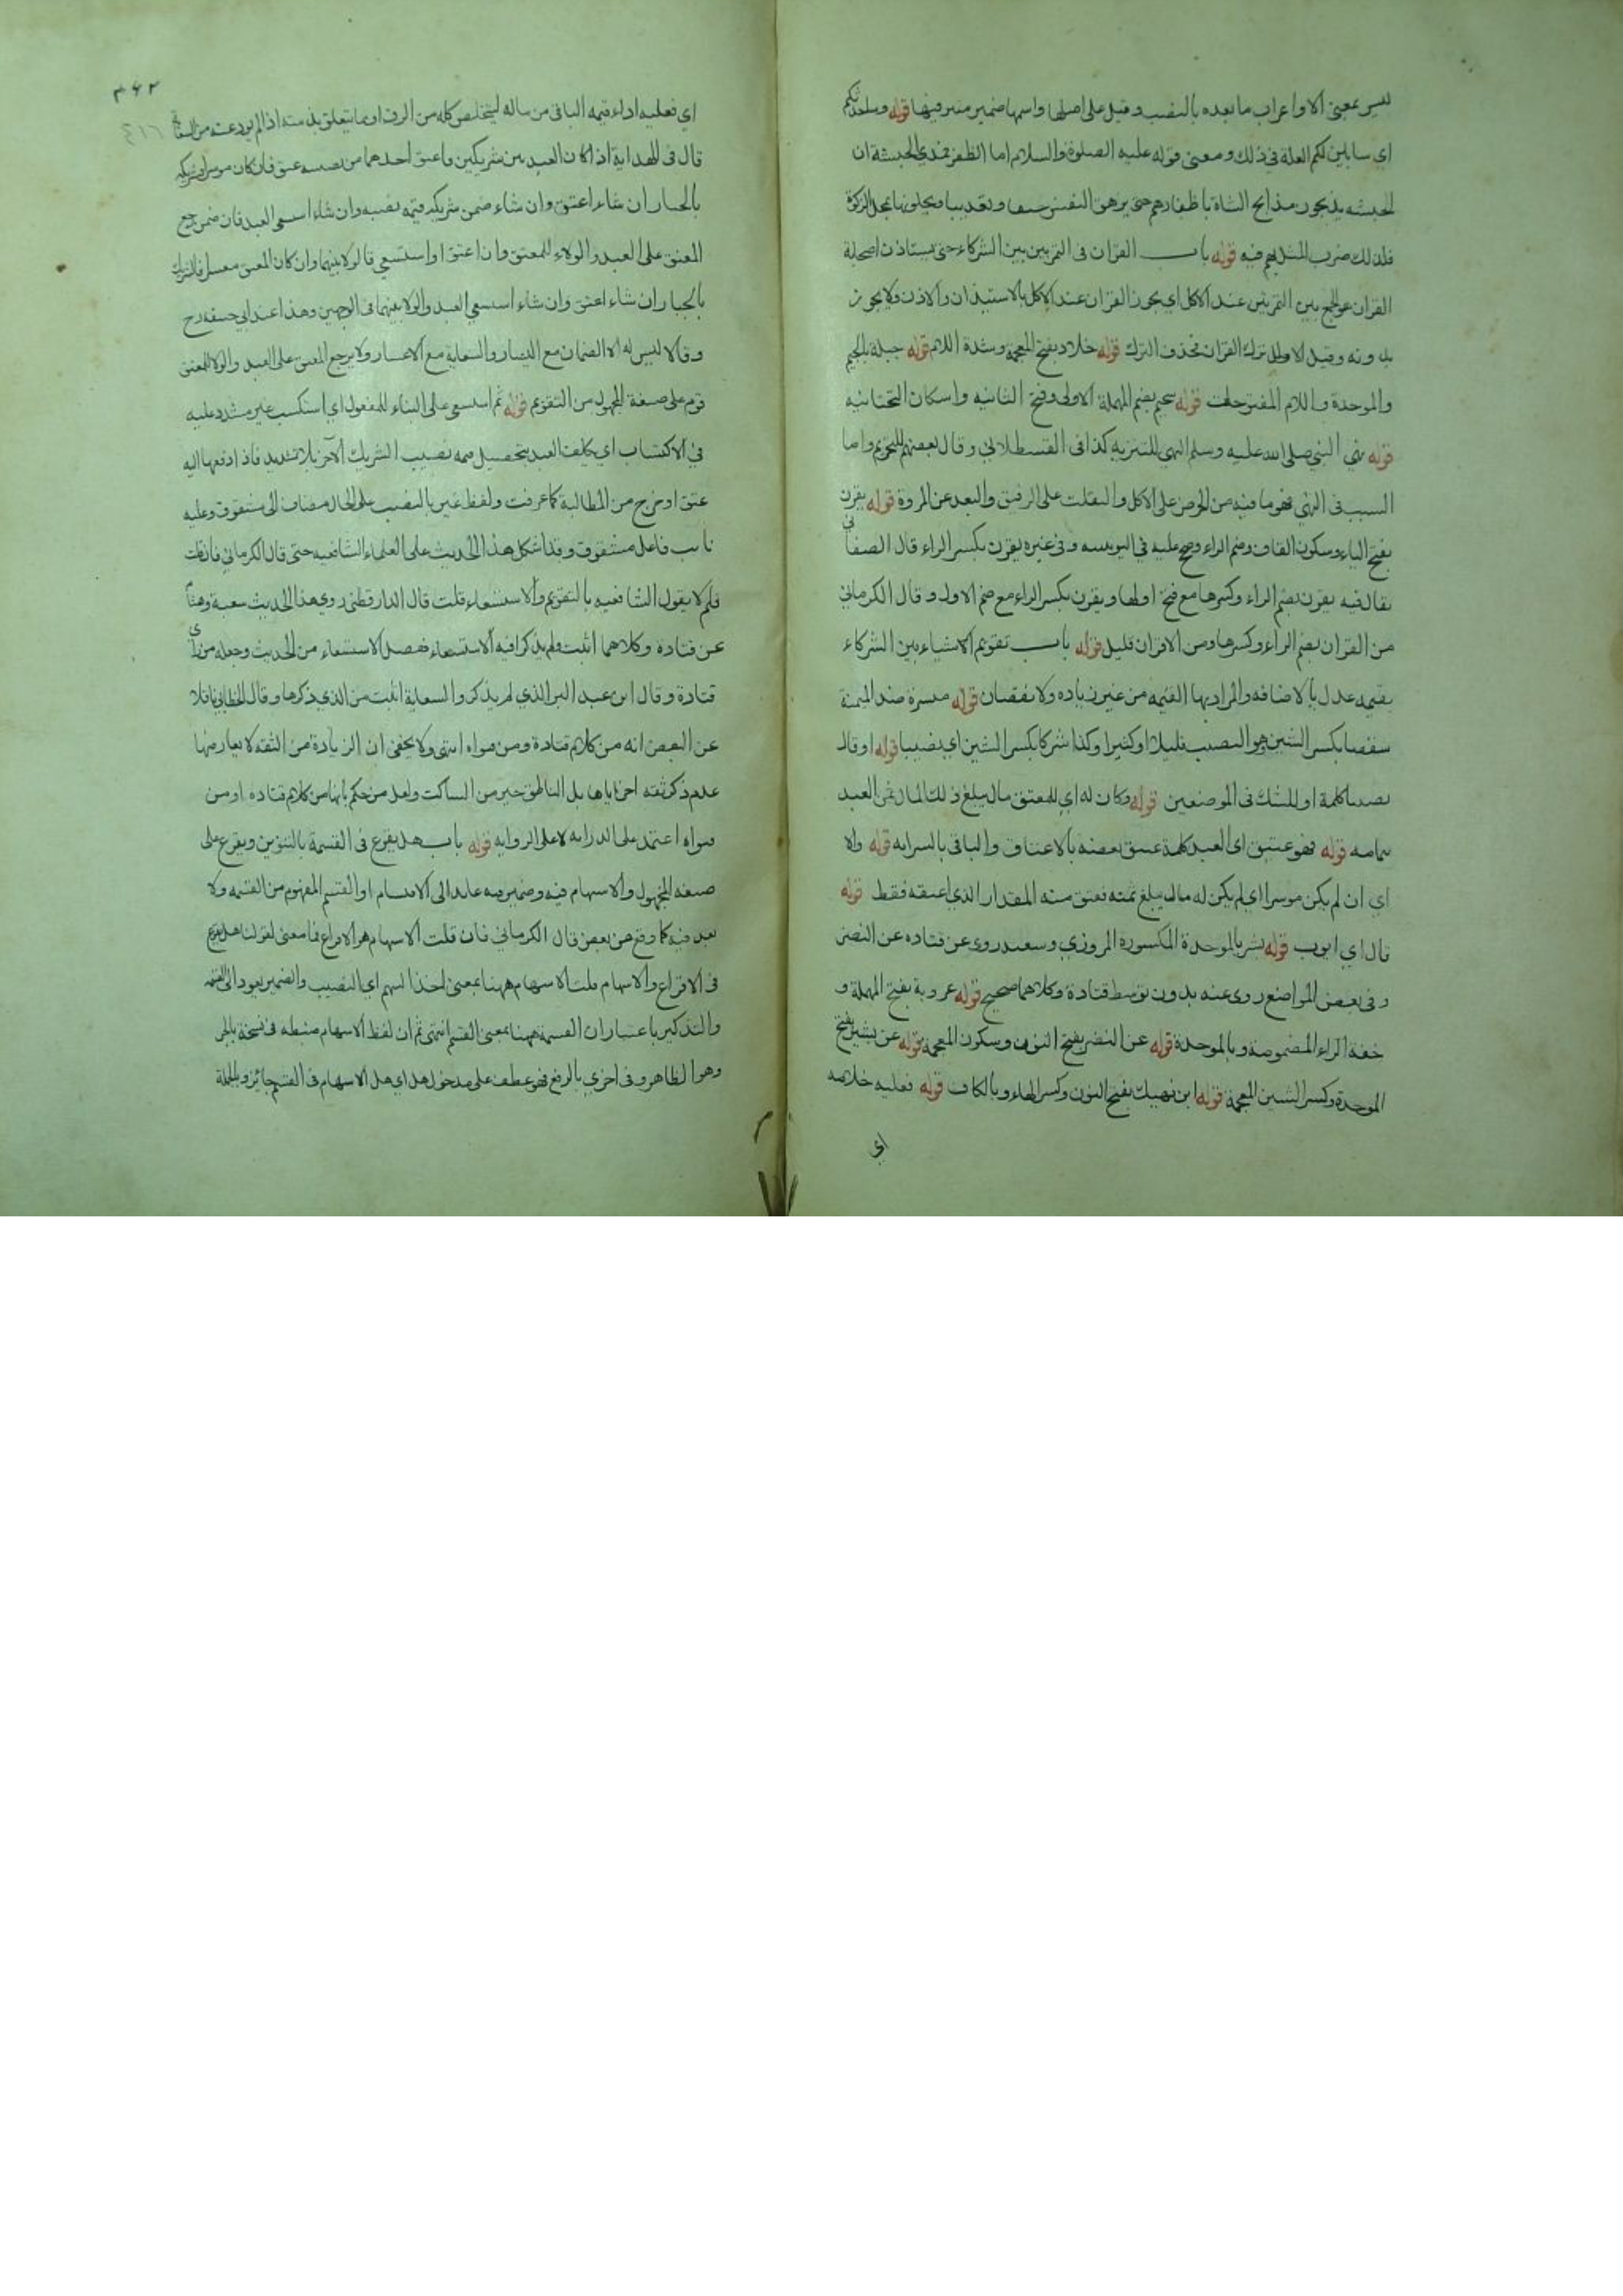 ليس بمعنى الا واعراب ما بعده بالنصب وقيل على اصلها واسمها ضمير مستتر فيها قوله وساحدثكم
اي سابين لكم العلة في ذلك ومعنى قوله عليه الصلوة والسلام اما الظفر فمدي الحبشة ان
الحبشه يدمون مذابح الشاة باظفارهم حتى يزهق النفس خنقا وتعذيبا ويحلونها محل الزكوة
فلذلك ضرب المثل بهم فيه قوله باب القران في التمر بين بين الشركاء حتى يستاذن اصحابه
القران هو الجمع بين التمرتين عند الاكل اي يجوز القران عند الاكل بالاستيذان والاذن ولا يجوز
بدونه وقيل الاولى ترك القران فحذف الترك قوله خلاد بفتح المعجمة وشدة اللام قوله جبلة بالجيم
والموحدة واللام المفتوحات قوله سحيم بضم المهملة الاولى وفتح الثانيه واسكان التحتانيه
قوله نهى النبي صلى الله عليه وسلم النهي للتنزيه كذا في القسطلاني وقال بعضهم للتحريم واما
السبب في النهي فهو ما فيه من الحرص على الاكل والتفلت على الرفيق والبعد عن المروة قوله يقرن
بفتح الياء وسكون القاف وضم الراء وصح عليه في اليونينيه وفي غيره يقرن بكسر الراء قال الصفاني
يقال فيه يقرن بضم الراء وكسرها مع فتح اولها ويقرن بكسر الراء مع ضم الاول وقال الكرماني
من القران بضم الراء وكسرها ومن الاقران قليل قوله باب تقويم الاشياء بين الشركاء
بقيمه عدل بالاضافه والمراد بها القيمه من غير زياده ولا نقصان قوله ميسرة ضد الميمنة
شقصا بكسر الشين هو النصيب قليلا او كثيرا وكذا شركا بكسر الشين اي نصيبا قوله او قال
نصيبا كلمة او للشك في الموضعين قوله وكان له اي للمعتق مال يبلغ ذلك المال ثمن العبد
بتمامه قوله فهو عتيق اي العبد كله عتيق بعضه بالاعتاق والباقي بالسرايه قوله والا
اي ان لم يكن موسرا اي لم يكن له مال يبلغ ثمنه فعتق منه المقدار الذي اعتقه فقط قوله
قال اي ايوب قوله بشر بالموحدة المكسوره المروزي وسعيد روى عن قتاده عن النضر
وفي بعض المواضع روى عنه بدون توسط قتادة وكلاهما صحيح قوله عروبة بفتح المهملة و
خفة الراء المضمومة وبالموحدة قوله عن النضر بفتح النون وسكون المعجمة قوله عن بشير بفتح
الموحدة وكسر الشين المعجمة قوله ابن نهيك بفتح النون وكسر الهاء وبالكاف قوله فعليه خلاصه
اي
٣٦٣
٤١٦
اي فعليه اداء قيمه الباقي من ماله ليتخلص كله من الرق او ما يتعلق بذمته اذا لم يود عنه من
قال في الهداية اذا كان العبد بين شريكين فاعتق احدهما من نصيبه عتق فان كان موسرا فشريكه
بالخيار ان شاء اعتق وان شاء ضمن شريكه قيمه نصيبه وان شاء استسعى العبد فان ضمن رجع
المعتق على العبد والولاء للمعتق وان اعتق او استسعي فالولاء بينهما وان كان المعتق معسرا فالشريك
بالخيار ان شاء اعتق وان شاء استسعي العبد والولا بينهما في الوجهين وهذا عند ابي حنيفه رح
وقالا ليس له الا الضمان مع اليسار والسعاية مع الاعسار ولا يرجع المعتق على العبد والولا للمعتق
قوم على صيغة المجهول من التقويم قوله ثم استسعى على البناء للمفعول اي استكسب غير مشدد عليه
في الاكتساب اي يكلف العبد بتحصيل قيمه نصيب الشريك الآخر بلا تشديد فاذا دفعها اليه
عتق او خرج من المطالبة كما عرفت ولفظ غير بالنصب على الحال مضاف الى مشقوق وعليه
نائب فاعل مشقوق وقد اشكل هذا الحديث على العلماء الشافعيه حتى قال الكرماني فان قلت
فلم لا يقول الشافعيه بالتقويم والاستسعاء قلت قال الدار قطني روى هذا الحديث شعبة وهشام
عن قتادة وكلاهما اثبت ولم يذكرا فيه الاستسعاء ففصل الاستسعاء من الحديث وجعله من راي
قتادة وقال ابن عبد البر الذي لم يذكروا السعاية اثبت من الذي ذكرها وقال الخطابي ناقلا
عن البعض انه من كلام قتادة ومن فتواه انتهى ولا يخفى ان الزيادة من الثقه لا يعارضها
عدم ذكر ثقه اخر اياها بل الناطق خير من الساكت ولعل من حكم بانها من كلام قتاده او من
فتواه اعتمد على الدرايه لا على الروايه قوله باب هل يقرع في القسمة بالتنوين ويقرع على
صيغه المجهول والاسهام فيه وضمير فيه عائد الى الاقتسام او القسم المفهوم من القسمه ولا
بعد فيه كما وقع من بعض قال الكرماني فان قلت الاسهام هو الاقراع فما معنى لقولك هل يقرع
في الاقراع والاسهام قلت الاسهام ههنا بمعنى اخذ السهم اي النصيب والضمير يعود الى القسمه
والتذكير باعتبار ان القسمة ههنا بمعنى القسم انتهى ثم ان لفظ الاسهام ضبطه في نسخة بالجر
وهو الظاهر وفي اخرى بالرفع فهو عطف على مدخول هل اي هل الاسهام في القسم جائز وبالجملة